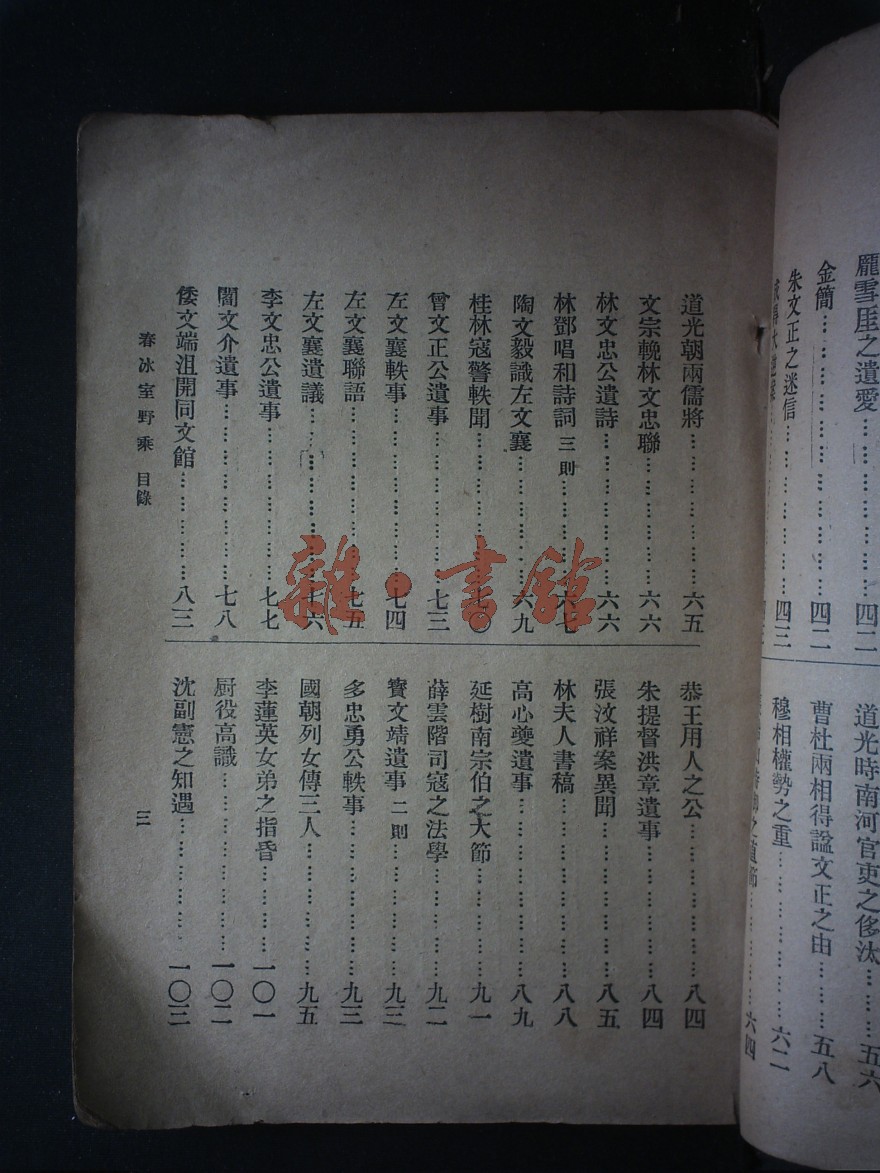 龐雪厓之遺愛……四二
金簡……四二
朱文正之迷信……四三
道光時南河官吏之侈汰……五六
曹杜兩相得諡文正之由……五八
穆相權勢之重……六二
六四
道光朝兩儒將……六五
文宗輓林文忠聯……六六
林文忠公遺詩……六六
林鄧唱和詩詞 三則……六七
陶文毅識左文襄……六九
桂林寇警軼聞……七〇
曾文正公遺事……七三
左文襄軼事……七四
左文襄聯語……七五
左文襄遺議……七六
李文忠公遺事……七七
閻文介遺事……七八
倭文端沮開同文館……八三
恭王用人之公……八四
朱提督洪章遺事……八四
張汶祥案異聞……八五
林夫人書稿……八八
高心夔遺事……八九
延樹南宗伯之大節……九一
薛雲階司寇之法學……九二
寶文靖遺事 二則……九三
多忠勇公軼事……九三
國朝列女傳三人……九五
李蓮英女弟之指昏……一〇一
厨役高識……一〇二
沈副憲之知遇……一〇三
春冰室野乘 目錄
三
雜·書館